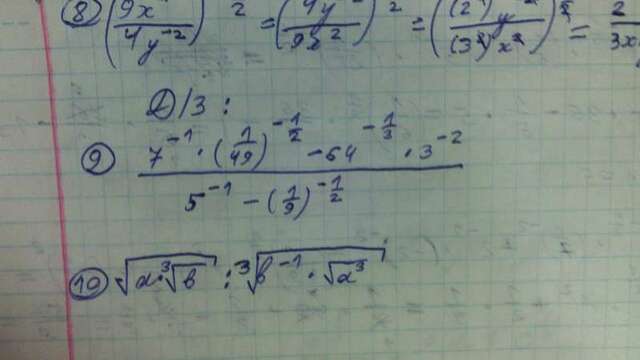 ⑧ (9x / 4y⁻²) ² = (4y / 9x²) ² = ((2²)y / (3²)x²) = 2 / 3x
Д/З :
⑨ (7⁻¹ · (1/49)^(-1/2) - 64^(-1/3) · 3⁻²) / (5⁻¹ - (1/9)^(-1/2))
⑩ √(a·³√b) : ³√(b⁻¹ · √a³)